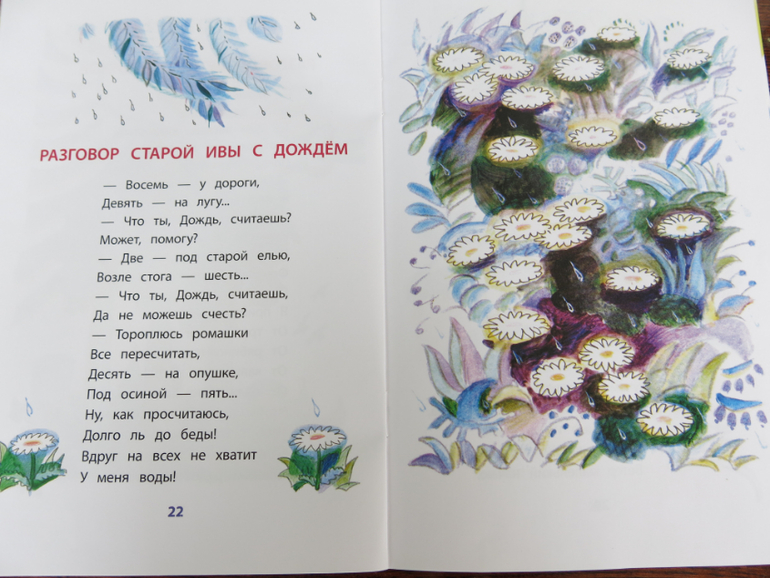 РАЗГОВОР СТАРОЙ ИВЫ С ДОЖДЁМ
— Восемь — у дороги,
Девять — на лугу...
— Что ты, Дождь, считаешь?
Может, помогу?
— Две — под старой елью,
Возле стога — шесть...
— Что ты, Дождь, считаешь,
Да не можешь счесть?
— Тороплюсь ромашки
Все пересчитать,
Десять — на опушке,
Под осиной — пять...
Ну, как просчитаюсь,
Долго ль до беды!
Вдруг на всех не хватит
У меня воды!
22